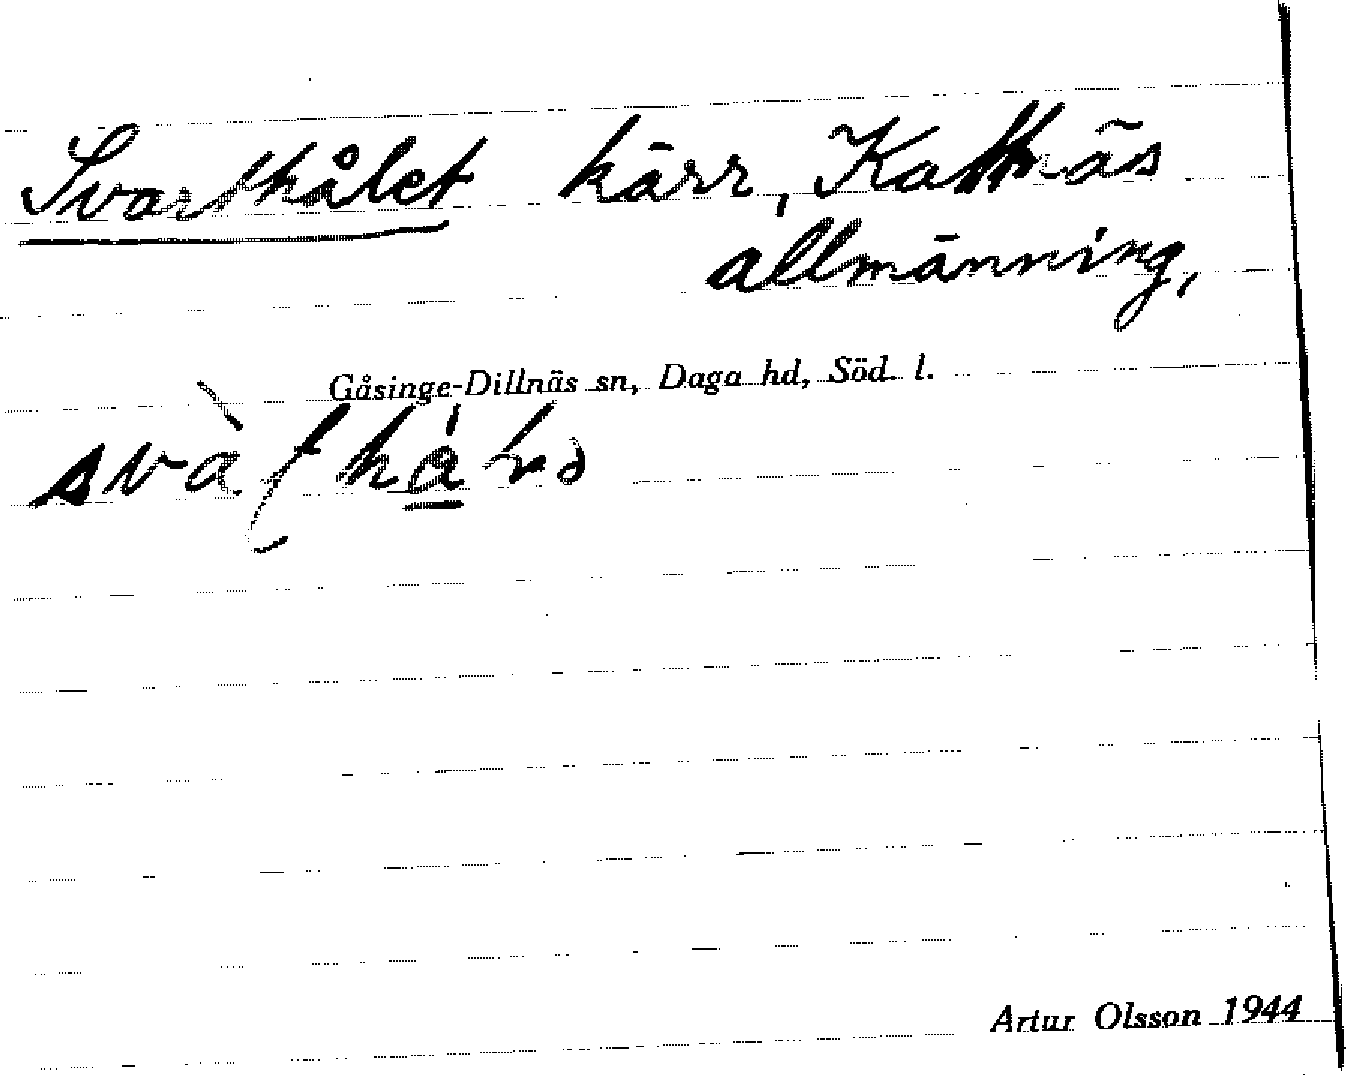 Svarthålet kärr, Kattnäs
allmänning,
Gåsinge-Dillnäs sn, Daga hd, Söd. l.
Artur Olsson 1944